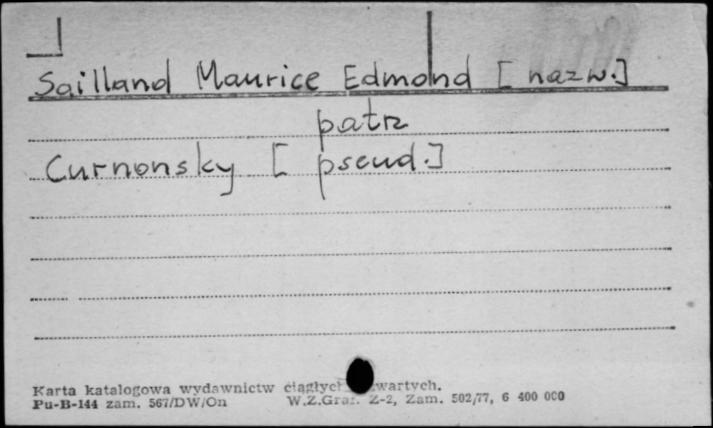 Sailland Maurice Edmond [nazw.]
patrz
Curnonsky [pseud.]
Karta katalogowa wydawnictw
Pu-B-144 zam. 567/DW/On W.Z.Graf. Z-2, Zam. 502/77, 6 400 000